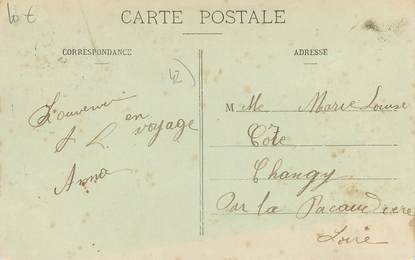 lot
CARTE POSTALE
CORRESPONDANCE
ADRESSE
42
Souvenir
en
voyage
Anna
M lle Marie Louise
Côte
Changy
Par la Pacaudiere
Loire